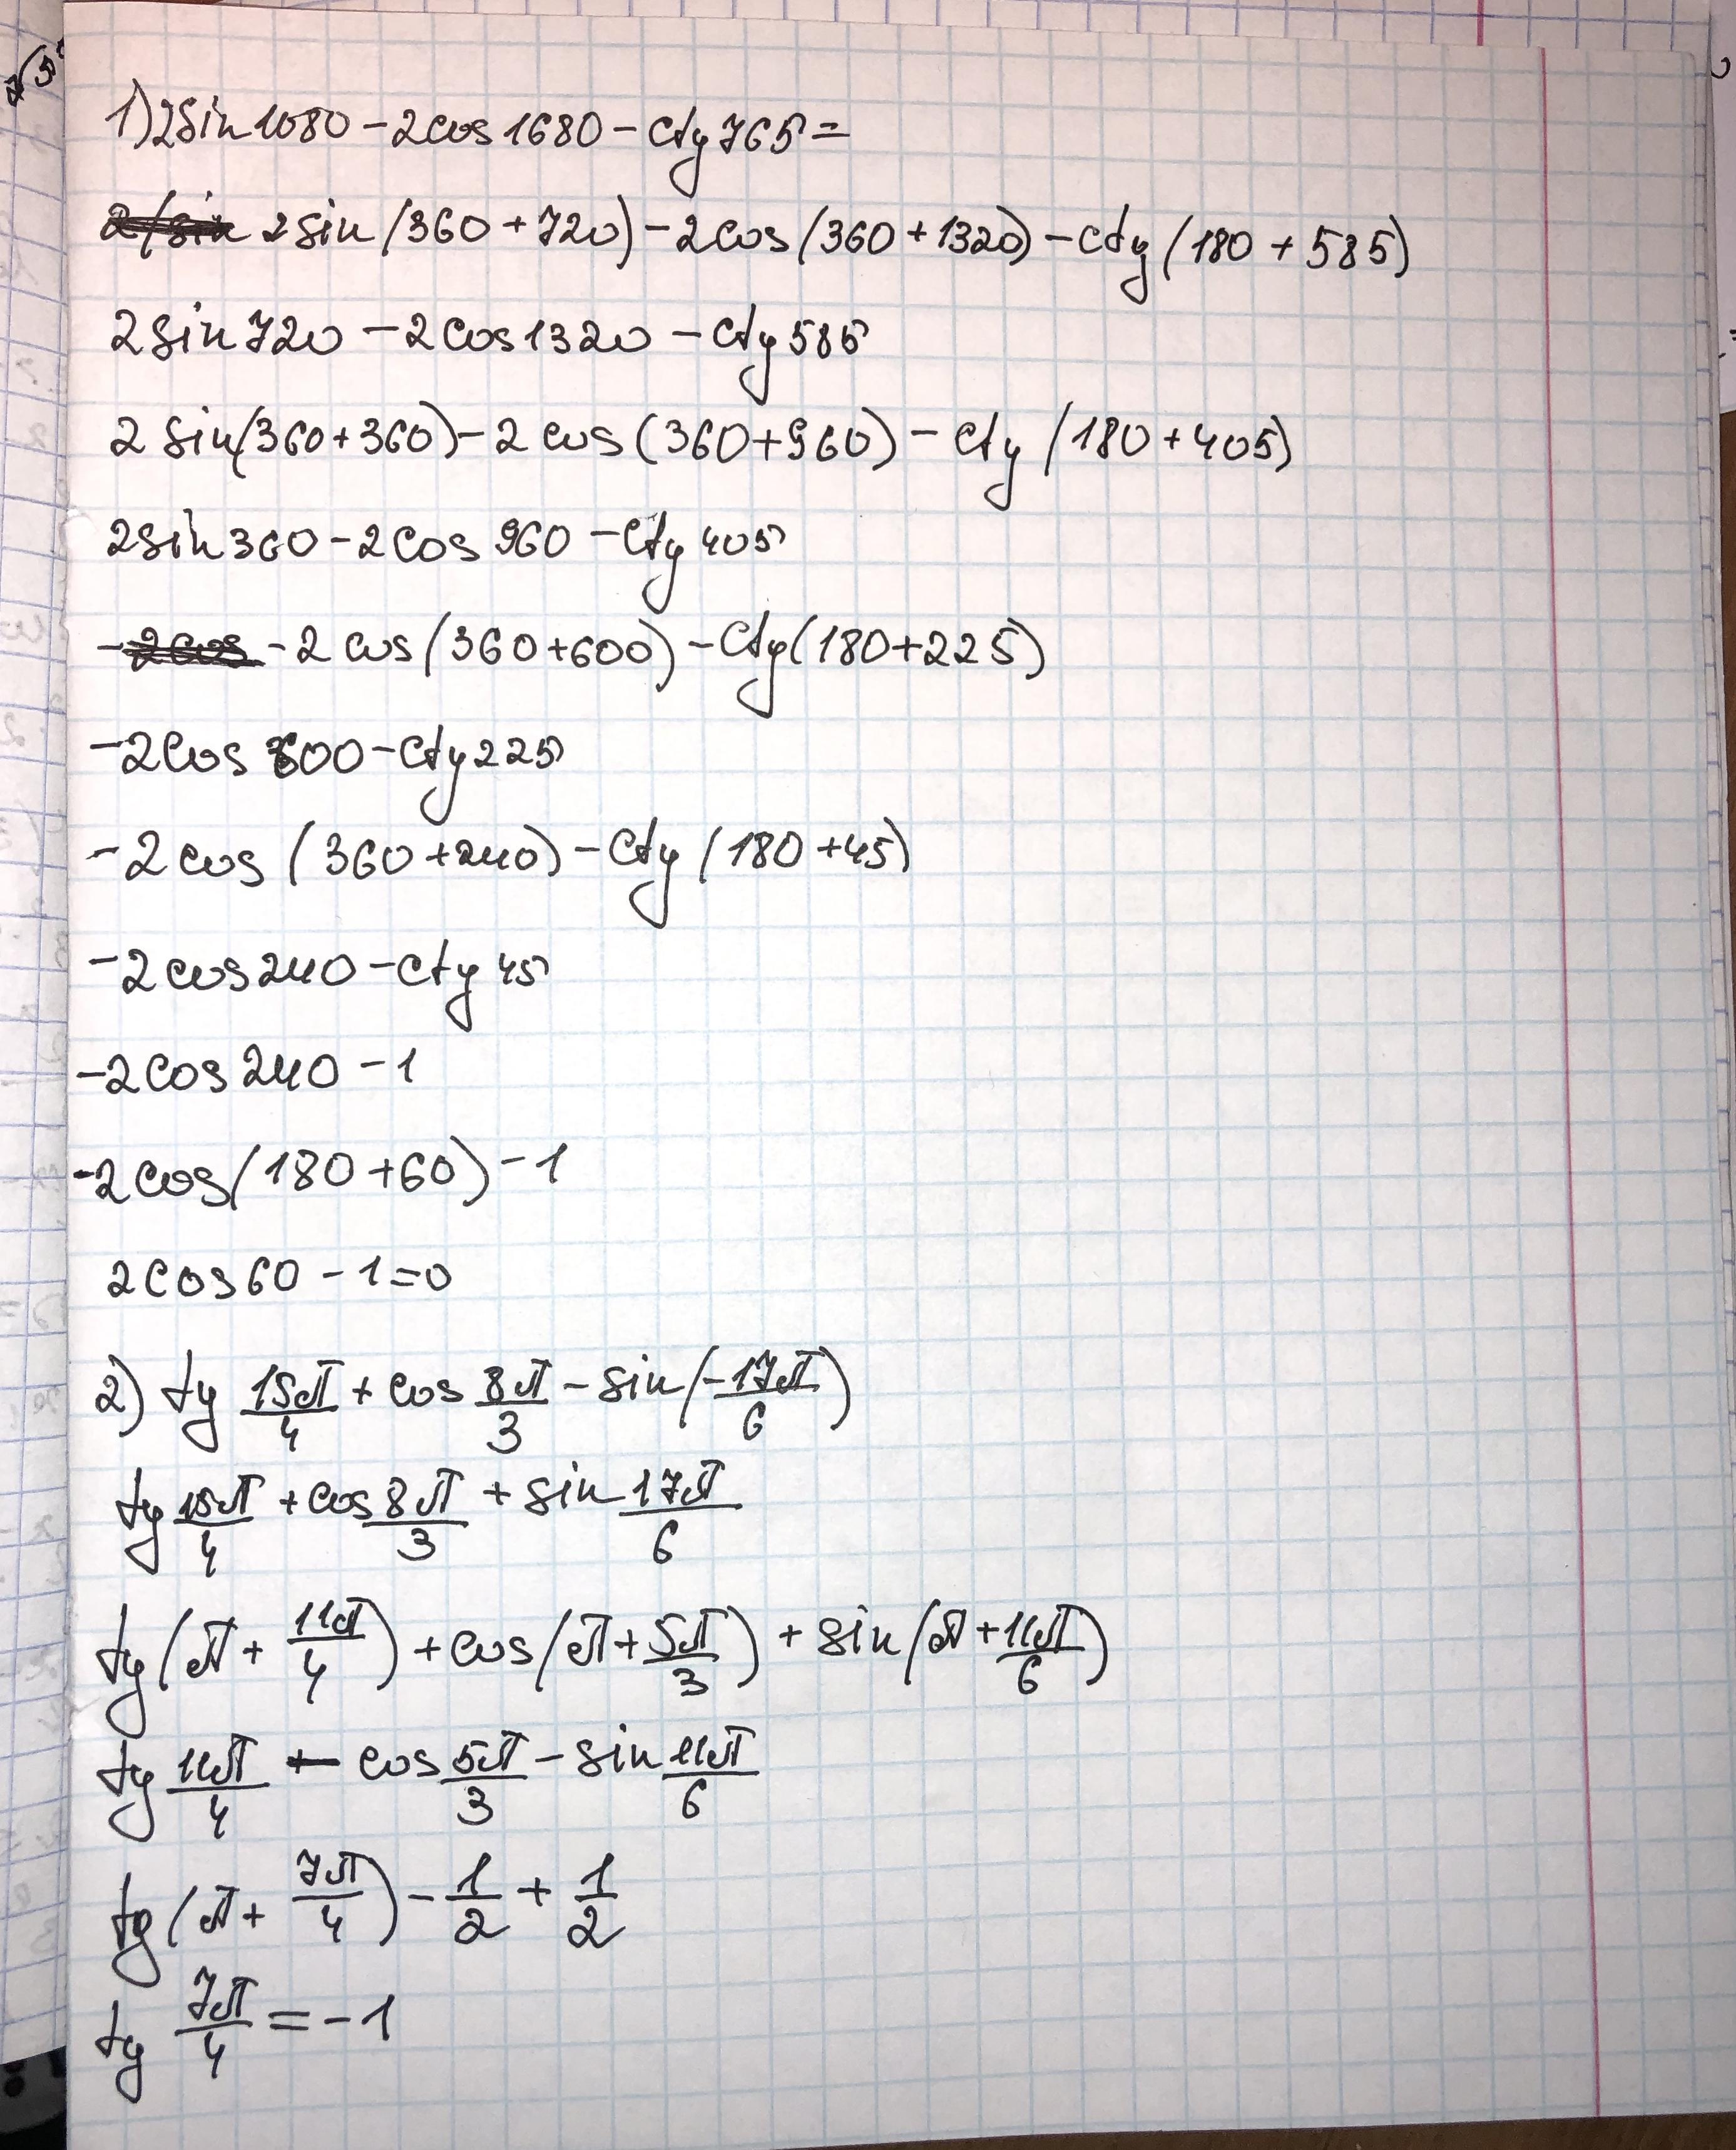 1) 2sin1080 - 2cos1680 - ctg765 =
2sin(360+720) - 2cos(360+1320) - ctg(180+585)
2sin720 - 2cos1320 - ctg585
2sin(360+360) - 2cos(360+960) - ctg(180+405)
2sin360 - 2cos960 - ctg405
-2cos(360+600) - ctg(180+225)
-2cos600 - ctg225
-2cos(360+240) - ctg(180+45)
-2cos240 - ctg45
-2cos240 - 1
-2cos(180+60) - 1
2cos60 - 1 = 0
2) tg 15π/4 + cos 8π/3 - sin(-17π/6)
tg 15π/4 + cos 8π/3 + sin 17π/6
tg(π + 11π/4) + cos(π + 5π/3) + sin(π + 11π/6)
tg 11π/4 - cos 5π/3 - sin 11π/6
tg(π + 7π/4) - 1/2 + 1/2
tg 7π/4 = -1